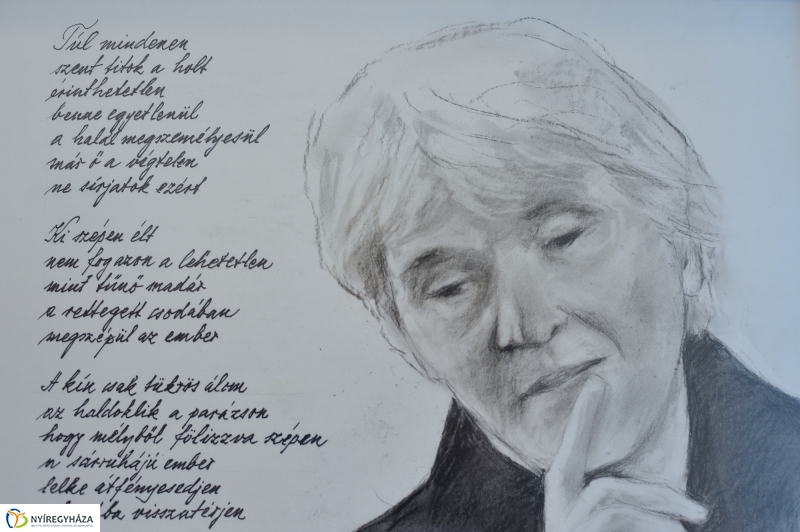 Túl mindenen
szent titok a holt
érinthetetlen
benne egyetlenül
a halál megszemélyesül
már ő a végtelen
ne sírjatok ezért
Ki szépen élt
nem fogazon a lehetetlen
mint tűnő madár
a rettegett csodában
megszépül az ember
A kín csak tükrös álom
az haldoklik a parázson
hogy mélyből fölizzva szépen
sárruhájú ember
lelke átfényesedjen
visszatérjen
NYÍREGYHÁZA